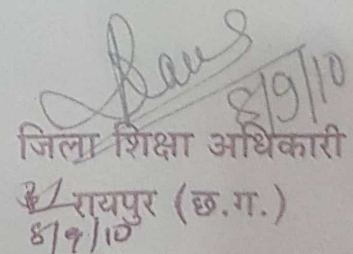 8/9/10
जिला शिक्षा अधिकारी
रायपुर (छ.ग.)
8/9/10